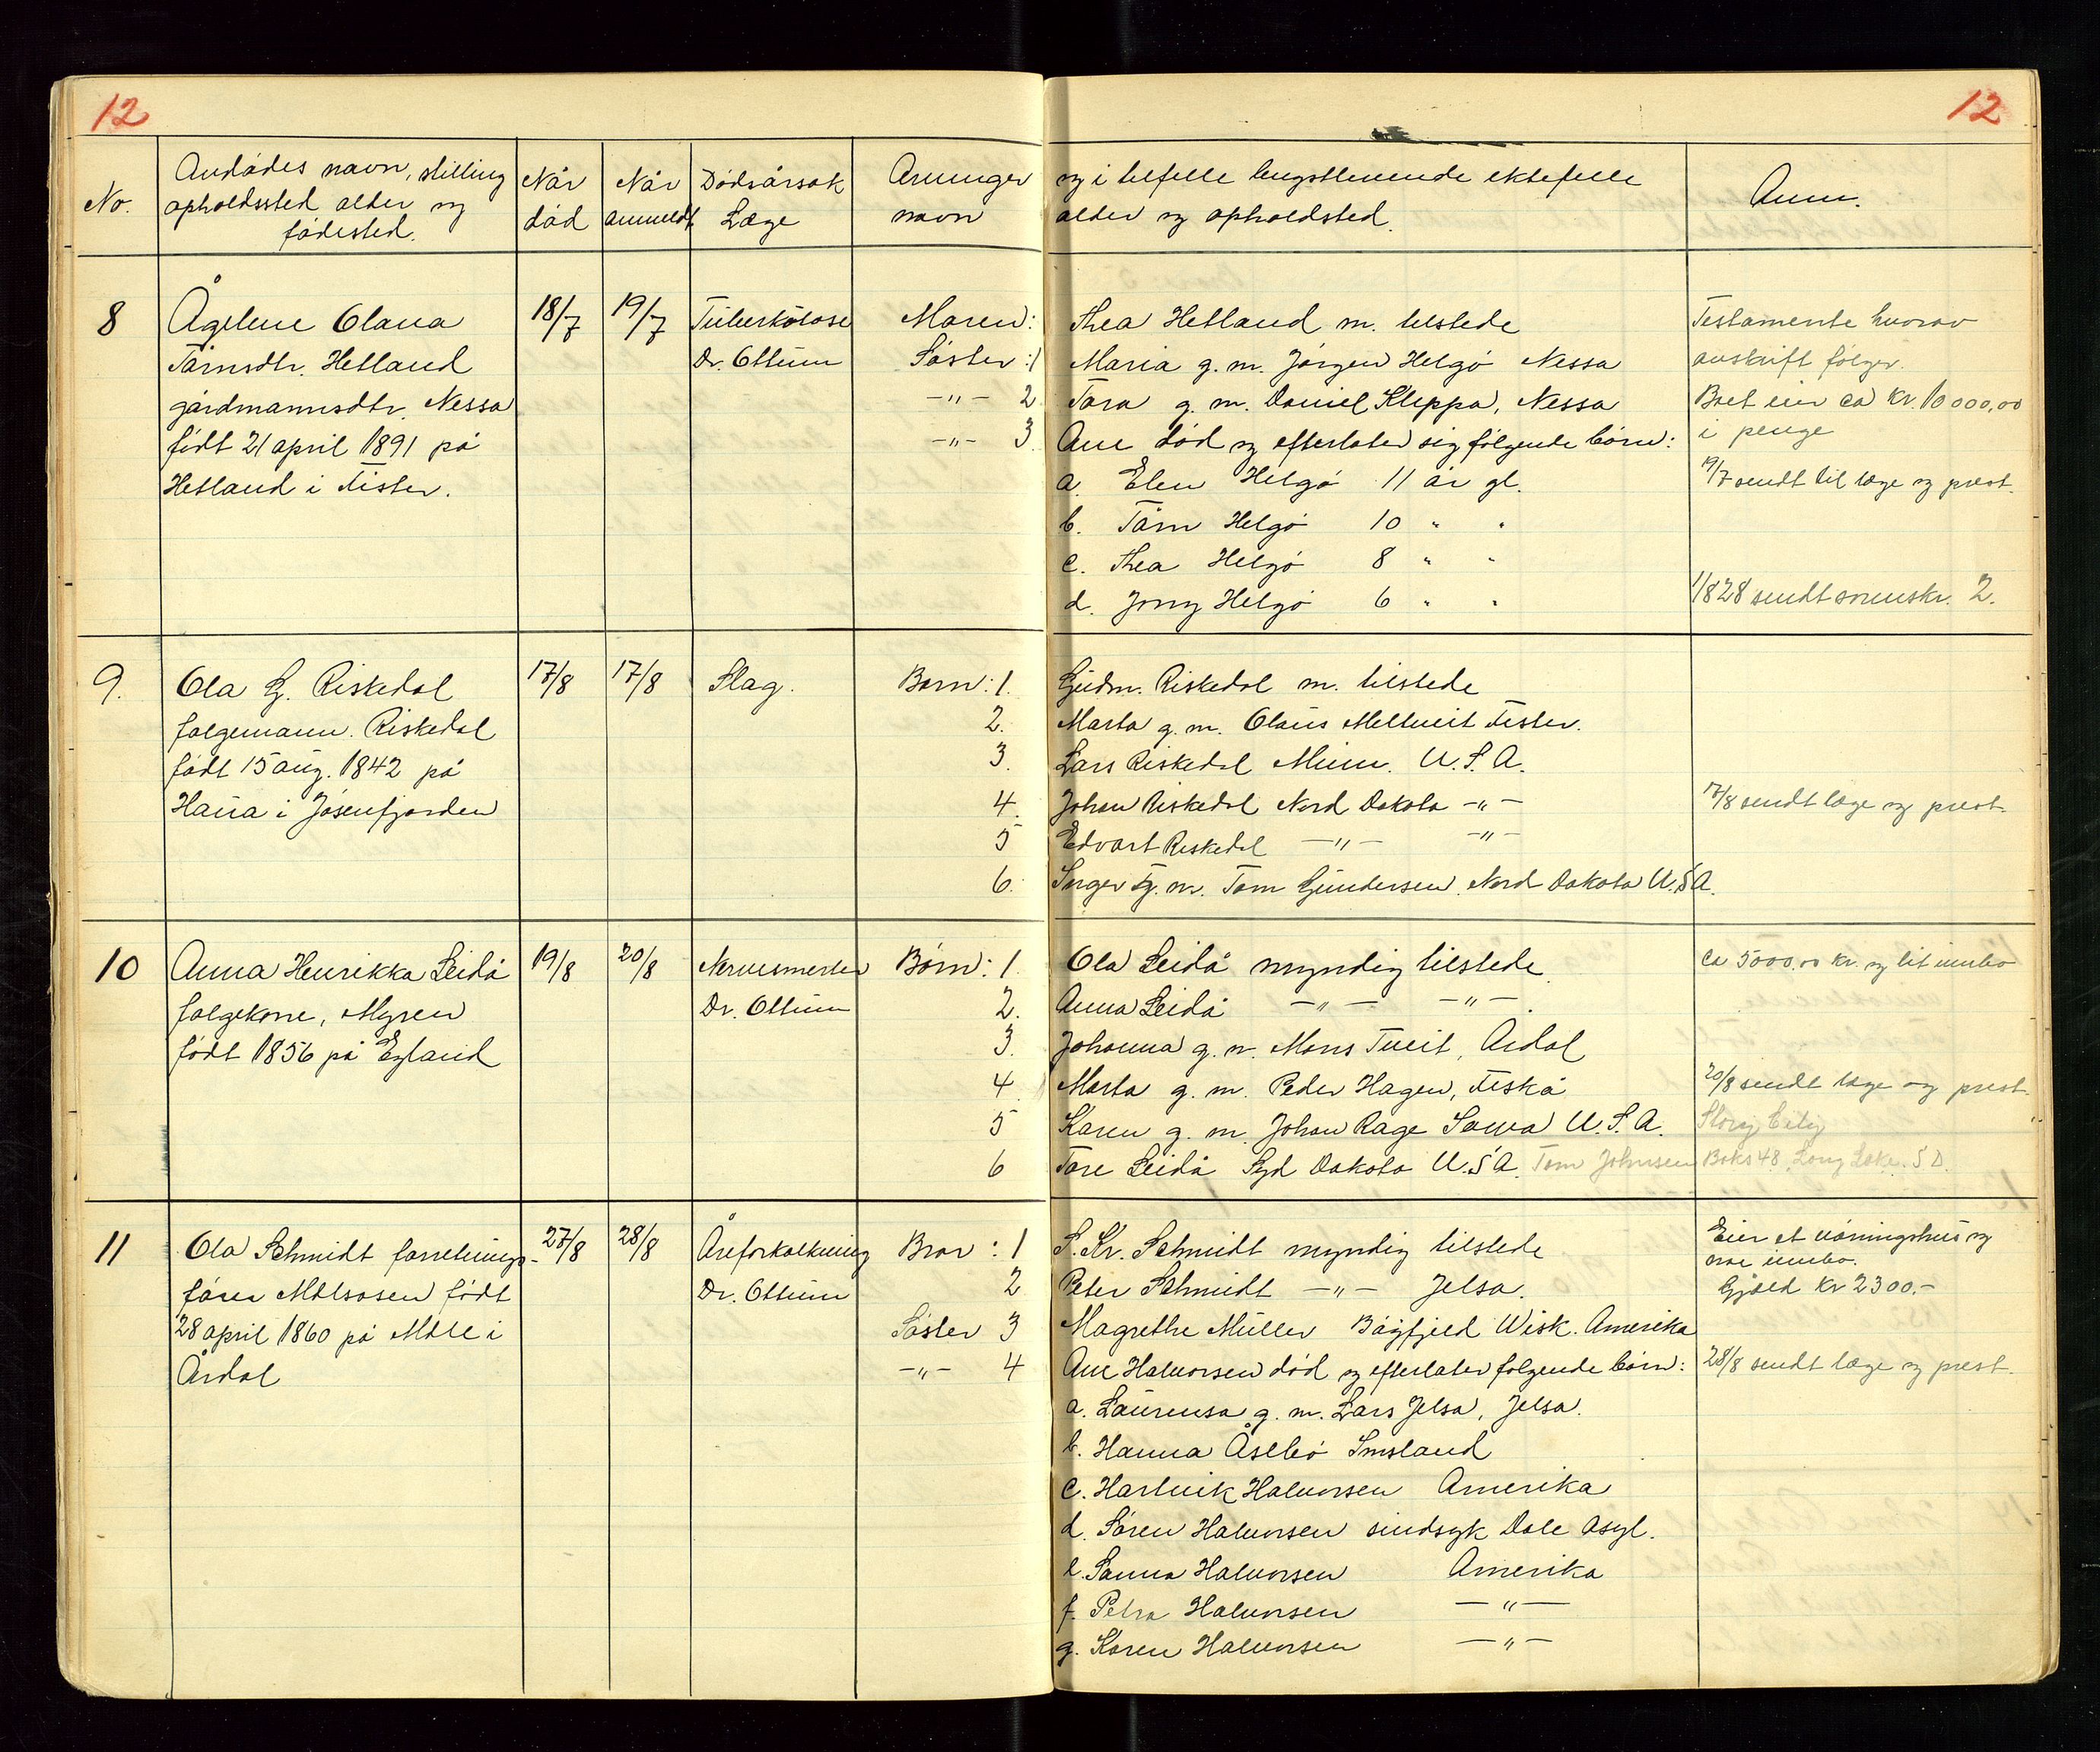 12
12
No.
Avdødes navn, stilling
opholdssted alder og
fødested.
Når
død
Når
anmeldt
Dødsårsak
Læge
Arvinger
navn
og i tilfelle lengstlevende ektefelle
alder og opholdsted.
Anm.
8
Ågelene Olava
Tormsdtr. Hetland
gårdmannsdtr. Nessa
født 21 april 1891 på
Hetland i Fister.
18/7
19/7
Tuberkolose
Dr. Ottum
Moren:
Thea Hetland m. tilstede
Søster: 1
Maria g. m. Jørgen Helgø Nessa
—"— 2
Tora g. m. Daniel Kleppa, Nessa
—"— 3
Ane død og efterlater sig følgende børn:
a. Elen Helgø 11 år gl.
b. Torm Helgø 10 " "
c. Thea Helgø 8 " "
d. Jony Helgø 6 " "
Testamente hvorav
avskrift følger.
Boet eier ca kr. 10 000,00
i penge
19/7 sendt til læge og prest.
1/8 28 sendt sorenskr. 2.
9.
Ola G. Riskedal
folgemann. Riskedal
født 15 aug. 1842 på
Haua i Jøsenfjorden
17/8
17/8
Slag.
Barn: 1.
Gudm. Riskedal m. tilstede
2.
Marta g. m. Olaus Meltveit Fister.
3.
Lars Riskedal Minn. U.S.A.
4.
Johan Riskedal Nord Dakota —"—
5
Edvart Riskedal —"— —"—
6.
Inger g. m. Tom Gundersen Nord Dakota U.S.A.
17/8 sendt læge og prest.
10
Anna Henrikka Leidå
folgekone, Myren
født 1856 på Egland
19/8
20/8
Nervesmerter
Dr. Ottum
Børn: 1.
Ola Leidå myndig tilstede
2.
Anna Leidå —"— —"—
3.
Johanna g. m. Mons Tveit, Årdal
4.
Marta g. m. Peder Hagen, Fiskå
5
Karen g. m. Johan Rage Iowa U.S.A.
6
Tore Leidå Syd Dakota U.S.A. Tom Johnsen Boks 48 Long Lake. S D.
ca 5000,00 kr. og lit innbo
20/8 sendt læge og prest.
Story City
11
Ola Schmidt forretnings-
fører Mølsosen født
28 april 1860 på Mæle i
Årdal
27/8
28/8
Åreforkalkning
Dr. Ottum
Bror: 1
S. Kr. Schmidt myndig tilstede
2
Peter Schmidt —"— Jelsa.
Søster 3
Magrethe Müller Bögfjeld Wisk. Amerika
—"— 4
Ane Halvorsen død og efterlater følgende børn:
a. Laurensa g. m. Lars Jelsa, Jelsa.
b. Hanna Åsebø Imsland
c. Hartvik Halvorsen Amerika
d. Søren Halvorsen sindsyk Dale Asyl.
e. Sanna Halvorsen Amerika
f. Petra Halvorsen —"—
g. Karen Halvorsen —"—
Eier et våningshus og
noe innbo.
Gjæld kr 2300.—
28/8 sendt læge og prest.